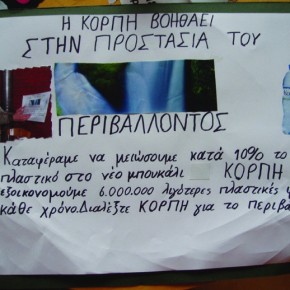 Η ΚΟΡΠΗ ΒΟΗΘΑΕΙ
ΣΤΗΝ ΠΡΟΣΤΑΣΙΑ ΤΟΥ
ΠΕΡΙΒΑΛΛΟΝΤΟΣ
Καταφέραμε να μειώσουμε κατά 10% το
πλαστικό στο νέο μπουκάλι ΚΟΡΠΗ
εξοικονομούμε 6.000.000 λιγότερες πλαστικές
κάθε χρόνο. Διαλέξτε ΚΟΡΠΗ για το